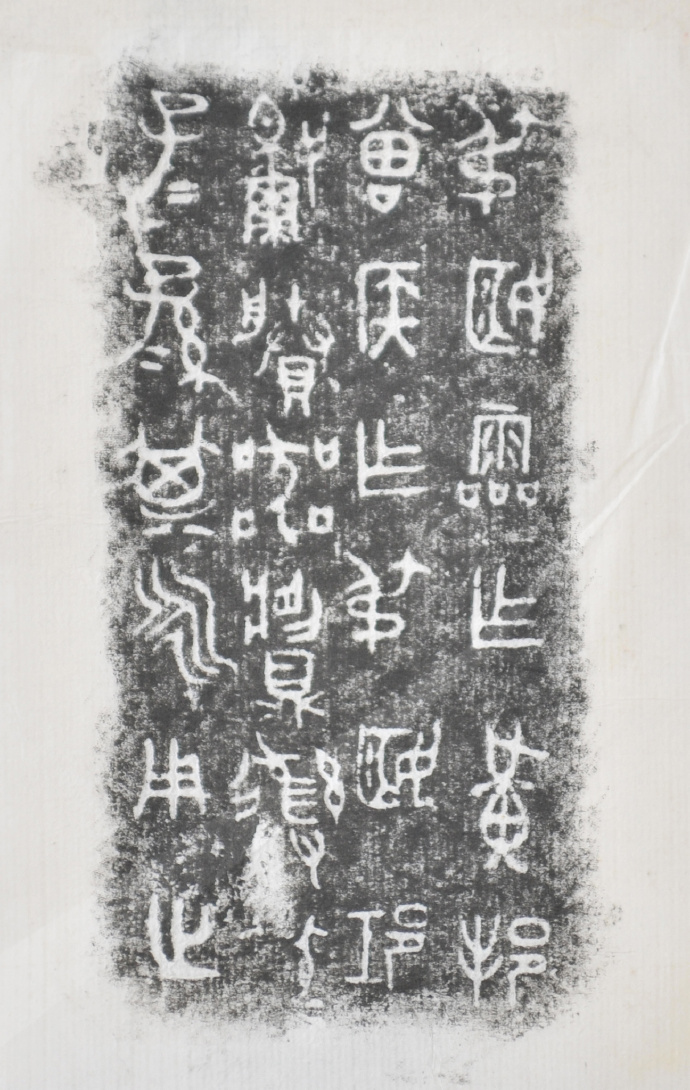 叔姬霝乍黃邦
曾侯乍叔姬邛
嬭賸器𩱧彝其
子=孫=其永用之